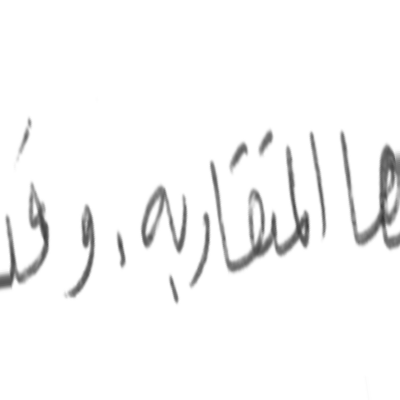 ها المتقاربه، وقد